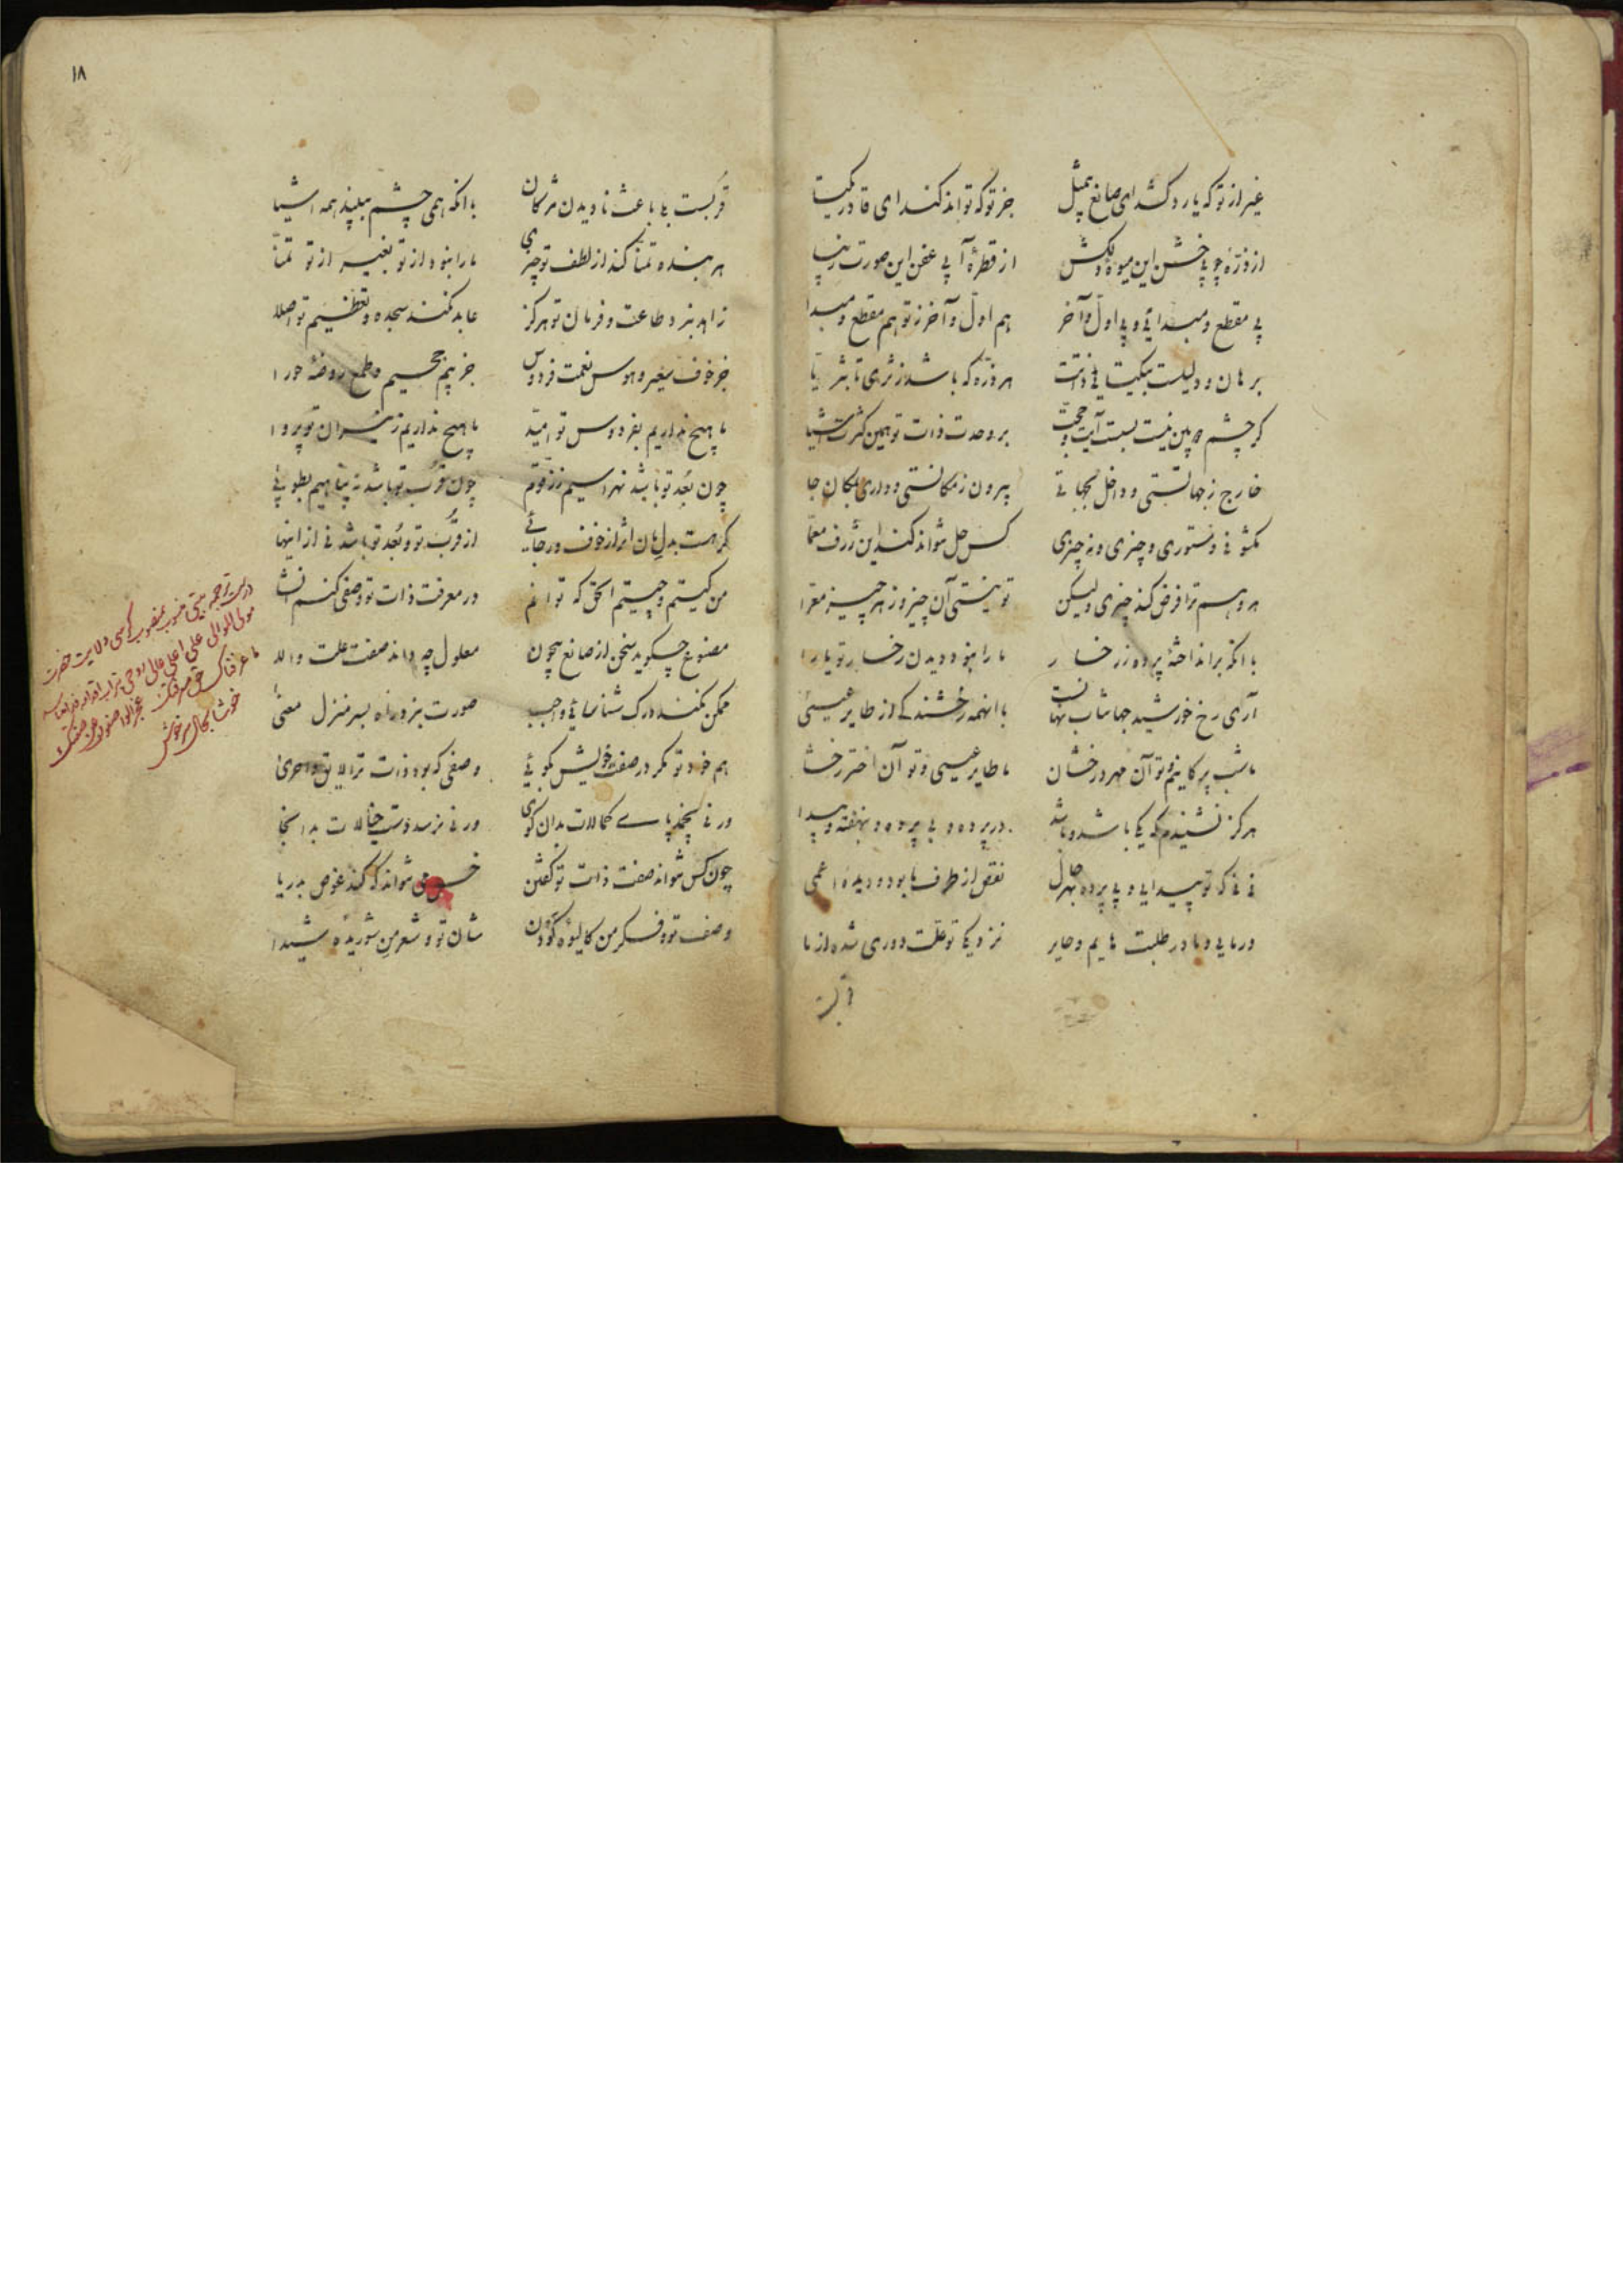 غیر از تو که یارد کند ای صانع بیمثل جز تو که تواند کند ای قادر یکتا
از ذره چوبی خشن این میوه دلکش از قطره آبی عفن این صورت زیبا
بی مقطع و مبدائی و بی اول و آخر هم اول و آخر ز تو هم مقطع و مبدا
برهان و دلیلست بیکتایی ذاتت هر ذره که باشد ز ثری تا بثریا
کر چشم دوبین نیست بست آیت و حجت بر وحدت ذات تو همین کثرت اشیا
خارج ز جهانستی و داخل بجهانی بیرون ز مکانستی و داری بمکان جا
مکشوفی و مستوری و چیزی و نه چیزی کس حل نتواند کند این ژرف معما
هر وهم ترا فرض کند چیزی و لیکن تو نیستی آن چیز و ز هر چیز معرا
با انکه برانداخته پرده ز رخسار ما را نبود دیدن رخسار تو یارا
آری رخ خورشید جهانتاب نهانست با انهمه رخشندکی از طایر عیسی
ما شب پرکانیم و تو آن مهر درخشان ما طایر عیسی و تو آن اختر رخشا
هرکز نشنیدم که یکی باشد و باشد در پرده و بی پرده و بنهفته و پیدا
نی نی که تو پیدایی و بی پرده بهر حال نقص از طرف ما بود و دیده اعمی
در مایی و ما در طلبت هایم و حایر نزدیکی تو علت دوری شده از ما
قربست
۱۸
قربست بلی باعث نادیدن مژکان با انکه همی چشم ببیند همه اشیا
هر بنده تمنا کند از لطف تو چیزی ما را نبود از تو بغیر از تو تمنا
زاهد نبرد طاعت و فرمان تو هرکز عابد نکند سجده و تعظیم تو اصلا
جز خوف سعیر و هوس نعمت فردوس جز بیم جحیم و طمع روضه حورا
ما هیچ نداریم بفردوس تو امید ما هیچ نداریم ز نیران تو پروا
چون بعد تو باشد نهراسیم ز زقوم چون قرب تو باشد نه پناهیم بطوبی
کر هست بدلمان اثر از خوف و رجائی از قرب تو و بعد تو باشد نی از اینها
من کیستم و چیستم الحق که توانم در معرفت ذات تو وصفی کنم انشا
مصنوع چه کوید سخن از صانع بیچون معلول چه داند صفت علت والا
ممکن نکند درک شناسائی واجب صورت نبرد راه بسر منزل معنی
هم خود تو مکر در صفت خویش بکوئی وصفی که بود ذات ترا لایق و احری
ور نی نچمد پای کمالات بدان کوی ور نی نرسد دست خیالات بدانجا
چون کس نتواند صفت ذات تو کفتن خس می نتواند که کند غوص بدریا
وصف تو و فکر من کالیوه کودن شان تو و شعر من شوریده شیدا
در ترجمه بیتی منسوب بمنصوب کرسی ولایت حضرت
مولی الموالی علی اعلی عالی روحی بتراب اقدام
ما عرفناک حق معرفتک عجز الواصفون عن صفتک
خوشا بحال سرخوش